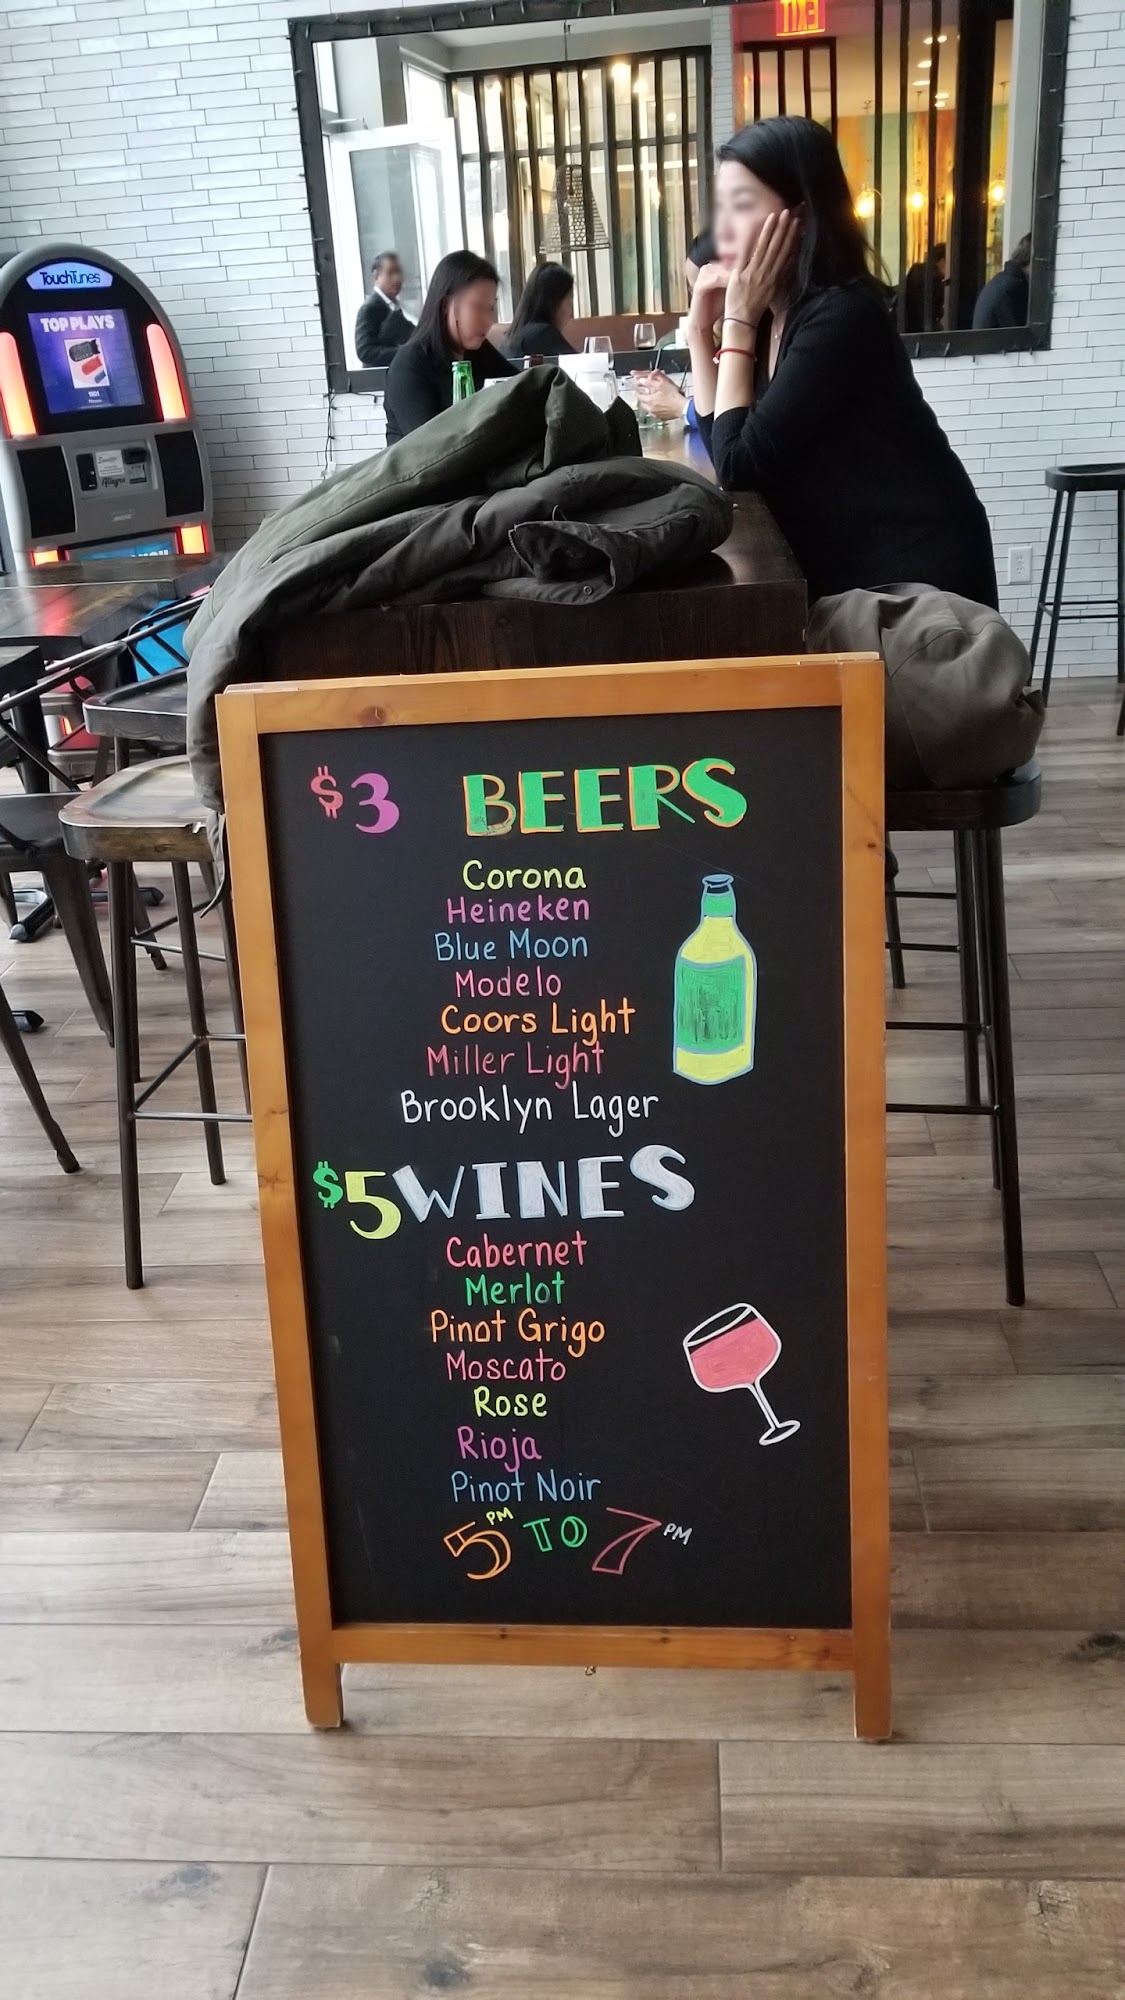 EXIT
TouchTunes
TOP PLAYS
$3 BEERS
Corona
Heineken
Blue Moon
Modelo
Coors Light
Miller Light
Brooklyn Lager
$5 WINES
Cabernet
Merlot
Pinot Grigo
Moscato
Rose
Rioja
Pinot Noir
5PM TO 7PM